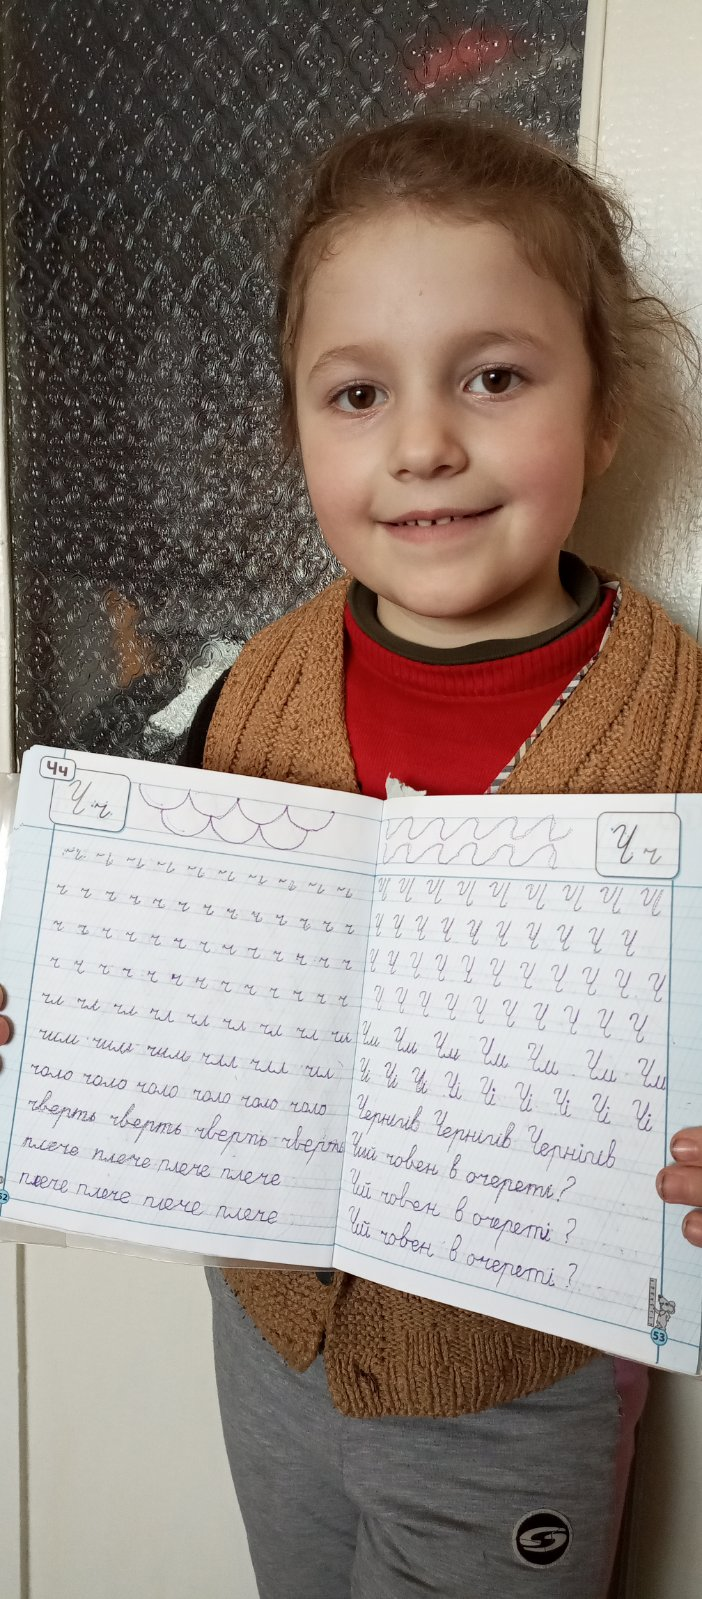 Чч
Ч ч
ч ч ч ч ч ч ч ч ч ч
ч ч ч ч ч ч ч ч ч ч ч ч ч
ч ч ч ч ч ч ч ч ч ч ч ч ч
ч ч ч ч ч ч ч ч ч ч ч ч ч
чл чл чл чл чл чл чл чл чи
чим чим чим чил чил чил
чоло чоло чоло чоло чоло чоло
чверть чверть чверть чверть
плече плече плече плече
плече плече плече плече
52
Ч ч
Ч Ч Ч Ч Ч Ч Ч Ч Ч
Ч Ч Ч Ч Ч Ч Ч Ч Ч Ч
Ч Ч Ч Ч Ч Ч Ч Ч Ч Ч
Ч Ч Ч Ч Ч Ч Ч Ч Ч
Чм Чм Чм Чм Чм Чм Чм
Чі Чі Чі Чі Чі Чі Чі Чі Чі
Чернігів Чернігів Чернігів
Чий човен в очереті?
Чий човен в очереті ?
Чий човен в очереті ?
53